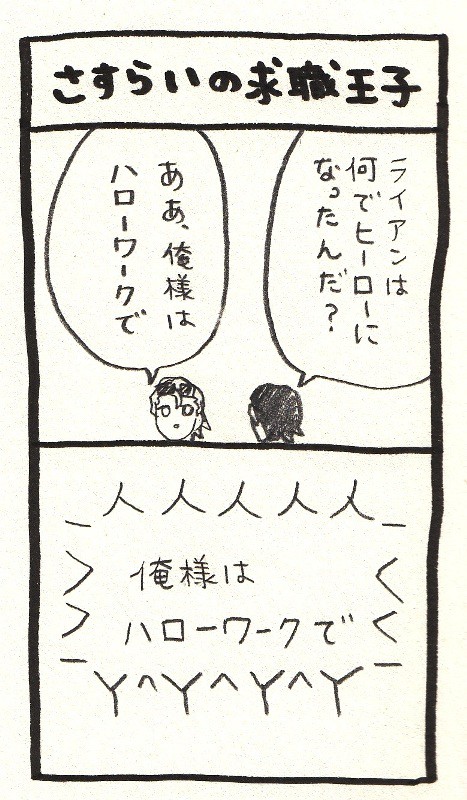 さすらいの求職王子
ライアンは
何でヒーローに
なったんだ？
ああ、俺様は
ハローワークで
俺様は
ハローワークで